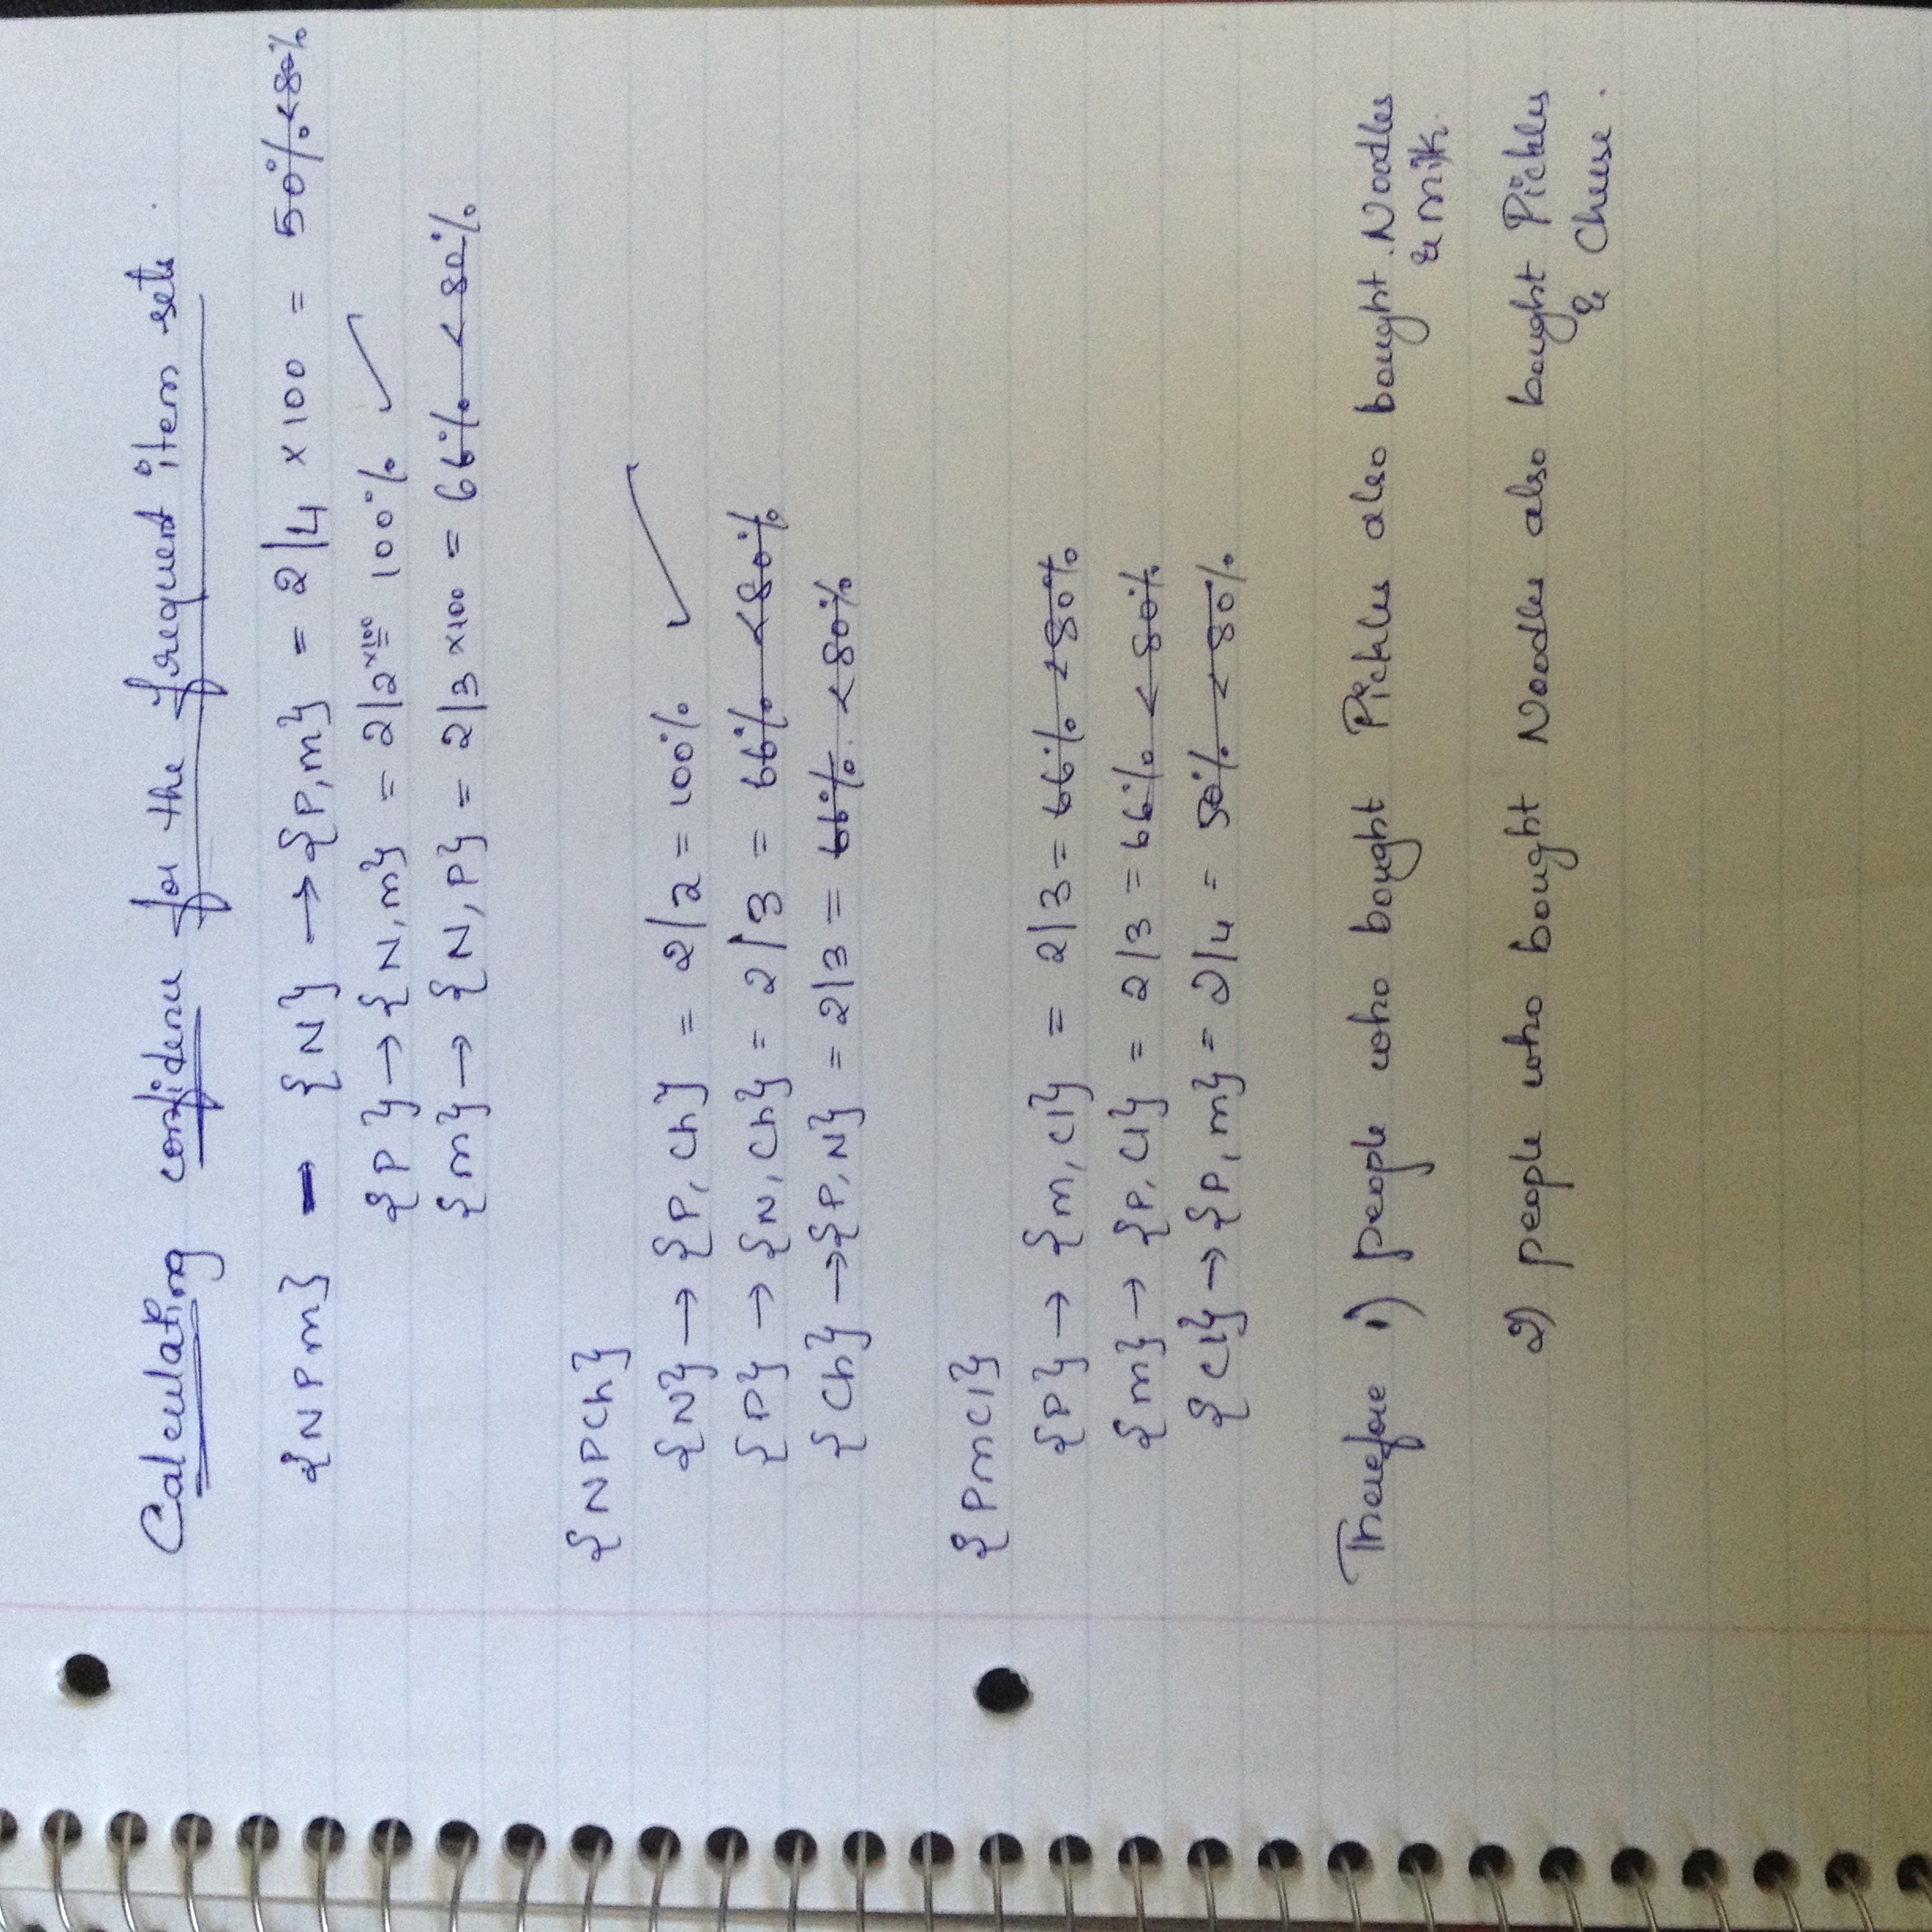 Calculating confidence for the frequent item sets.
{NPm} - {N} → {P,m} = 2/4 ×100 = 50% <80%
{P} → {N,m} = 2/2 ×100 = 100% ✓
{m} → {N,P} = 2/3 ×100 = 66% < 80%
{NPCh}
{N} → {P, Ch} = 2/2 = 100% ✓
{P} → {N, Ch} = 2/3 = 66% <80%
{Ch} → {P, N} = 2/3 = 66% <80%
{PmCl}
{P} → {m, Cl} = 2/3 = 66% <80%
{m} → {P, Cl} = 2/3 = 66% < 80%
{Cl} → {P, m} = 2/4 = 50% < 80%
Therefore 1) people who bought Pickles also bought Noodles
& milk.
2) people who bought Noodles also bought Pickles
& Cheese.